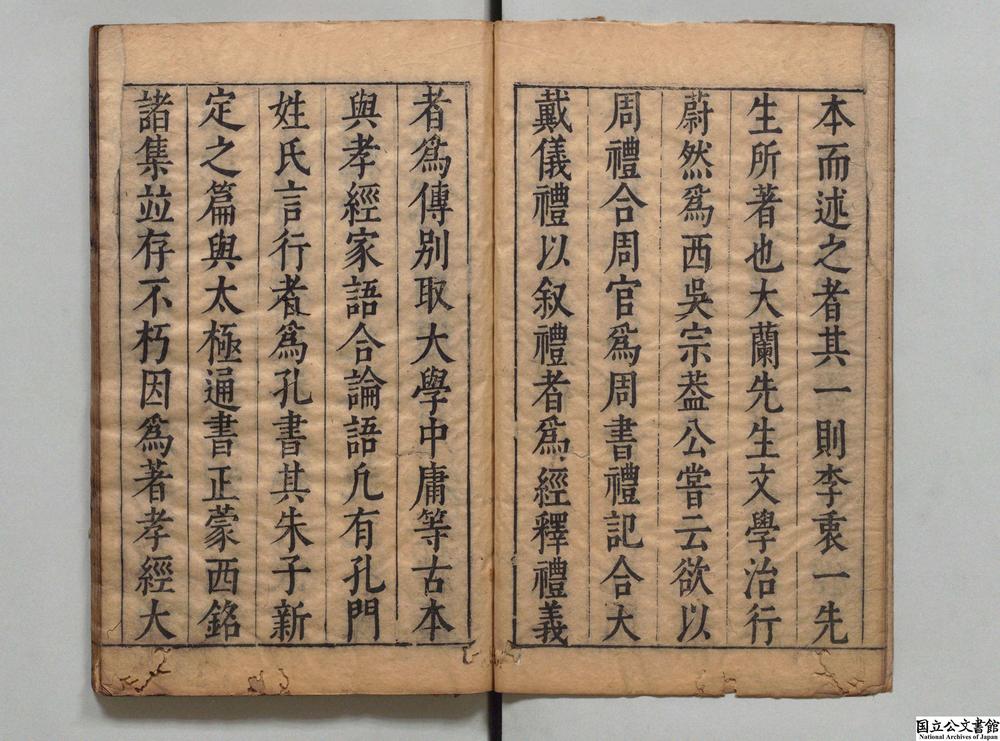 本而述之者其一則李衷一先
生所著也大蘭先生文學治行
蔚然爲西吳宗葢公嘗云欲以
周禮合周官爲周書禮記合大
戴儀禮以叙禮者爲經釋禮義
者爲傳别取大學中庸等古本
與孝經家語合論語凢有孔門
姓氏言行者爲孔書其朱子新
定之篇與太極通書正蒙西銘
諸集並存不朽因爲著孝經大
国立公文書館
National Archives of Japan